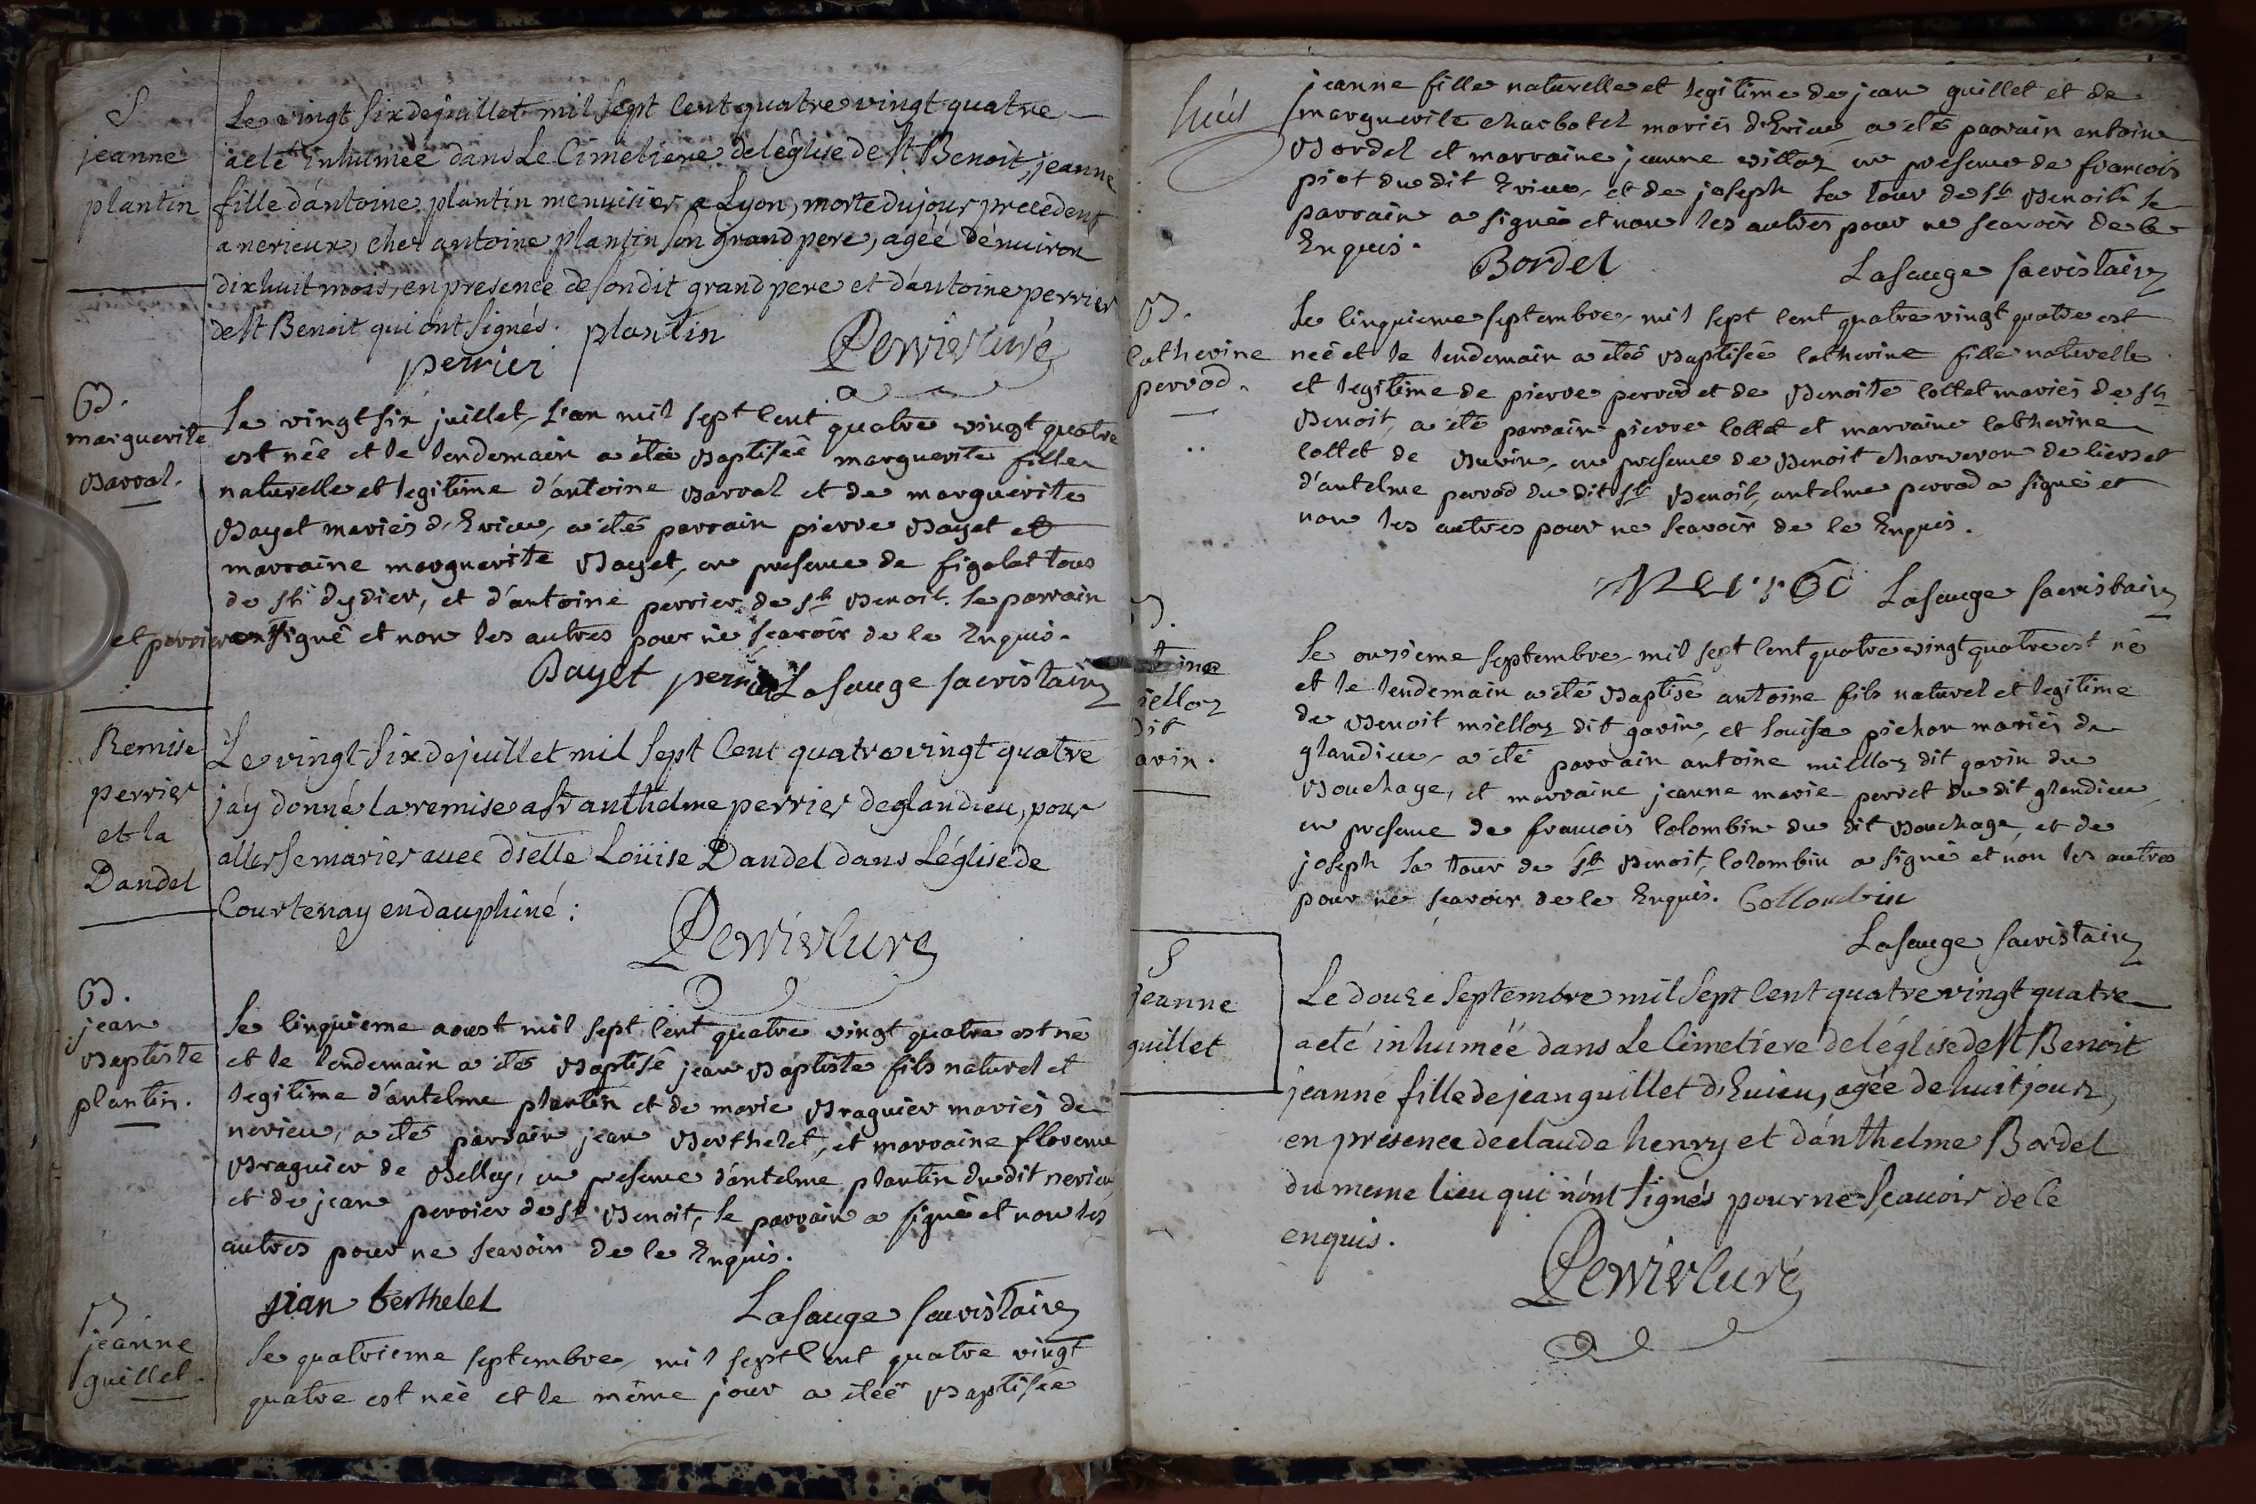 S
jeanne
plantin
Le vingt six de juillet mil sept cent quatre vingt quatre
a eté inhumée dans Le Cimetiere de léglise de St Benoit, jeanne
fille d'antoine plantin menuisier a Lyon, morte du jour precedent
a nerieux, chez antoine plantin son grand pere, ágéé dénuiron
dix huit mois, en presence de son dit grand pere et d'antoine perrier
de St Benoit qui ont signés. plantin
perrier Perrier curé
B.
marguerite
Barral.
Le vingt six juillet, l'an mil sept cent quatre vingt quatre
est née et le lendemain a étée Baptisée marguerite fille
naturelle et legitime d'antoine Barral et de marguerite
Bayet mariés d'Evieu, a été parrain pierre Bayet et
marraine marguerite Bayet, en presence de figolet tous
de St dydier, et d'antoine perrier de St Benoit. le parrain
et perrier ont signé et non les autres pour ne scavoir de ce Enquis.
Bayet perrier Lasauge sacristain
Remise
perrier
et la
Dandel
Le vingt six de juillet mil sept Cent quatre vingt quatre
j'ay donné la remise a Sr anthelme perrier de glandieu, pour
aller se marier avec dselle Loüise Dandel dans L'église de
Courtenay en dauphiné :
Perrier curé
B.
jean
Baptiste
plantin.
Le cinquieme aoust mil sept cent quatre vingt quatre est né
et le lendemain a été Baptisé jean Baptiste fils naturel et
legitime d'antelme plantin et de marie Braguier mariés de
nerieu, a été parrain jean Berthelet, et marraine florence
Braguier de Belley, en presence d'antelme plantin du dit nerieu
et de jean perrier de St Benoit, le parrain a signé et non les
autres pour ne scavoir de ce Enquis.
jian berthelet Lasauge sacristain
B
jeanne
guillet.
Le quatrieme septembre mil sept cent quatre vingt
quatre est née et le même jour a étéé Baptisée
jeanne fille naturelle et legitime de jean guillet et de
marguerite charbotel mariés d'Evieu, a été parrain antoine
Bordel et marraine jeanne villoz en presence de francois
piot du dit Evieu, et de joseph La tour de St Benoit. le
parrain a signé et non les autres pour ne scavoir de ce
Enquis. Bordel
Lasauge sacristain
B.
Catherine
perrod.
Le cinquieme septembre mil sept cent quatre vingt quatre est
neé et le lendemain a étéé Baptiseé Catherine fille naturelle
et legitime de pierre perrod et de Benoite Cottet mariés de St
Benoit, a été parrain pierre Cottet et marraine Catherine
Cottet de Buvin, en presence de Benoit charveron de Ciers et
d'antelme perrod du dit St Benoit, antelme perrod a signé et
non les autres pour ne scavoir de ce Enquis.
Lasauge sacristain
Le onzieme septembre mil sept cent quatre vingt quatre est né
et le lendemain a été Baptisé antoine fils naturel et legitime
de Benoit mielloz dit gavin, et Louise pichon mariés de
glandieu, a été parrain antoine mielloz dit gavin du
Bouchage, et marraine jeanne marie perret du dit glandieu
en presence de francois Colombin du dit Bouchage, et de
joseph La tour de St Benoit, Colombin a signé et non les autres
pour ne scavoir de ce Enquis. Colloubin
Lasauge sacristain
S
jeanne
guillet
Le douze Septembre mil Sept Cent quatre vingt quatre
a eté inhumée dans Le Cimetiere de léglise de St Benoit
jeanne fille de jean guillet d'Euieu, agée de huit jours,
en presence de claude henry et d'anthelme Bordel
du meme lieu qui n'ont signés pour ne Scauoir de ce
enquis.
Perrier curé